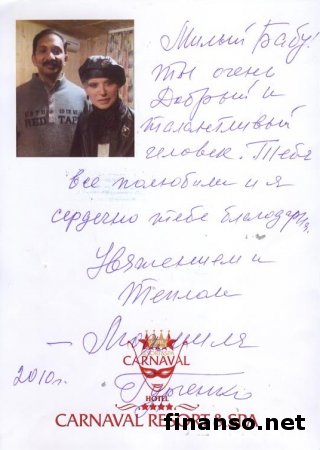 Милый Бабу!
Ты очень
Добрый и
талантливый
человек. Тебя
все полюбили и я
сердечно тебе благодарна.
С уважением и
Теплом
— Людмила
2010г. Гурченко
CARNAVAL
HOTEL
CARNAVAL RESORT & SPA
finanso.net